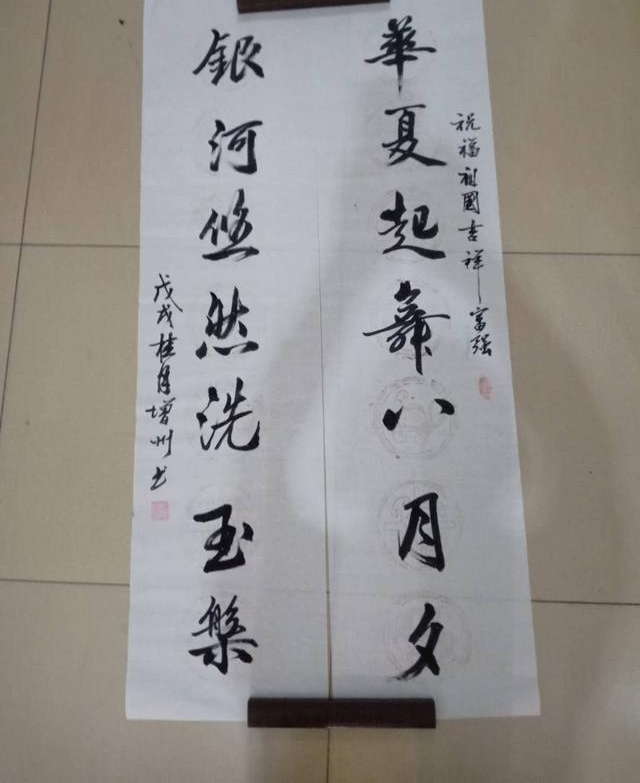 祝福祖國吉祥富强
華夏起舞八月夕
銀河悠然洗玉槃
戊戌桂月增州书